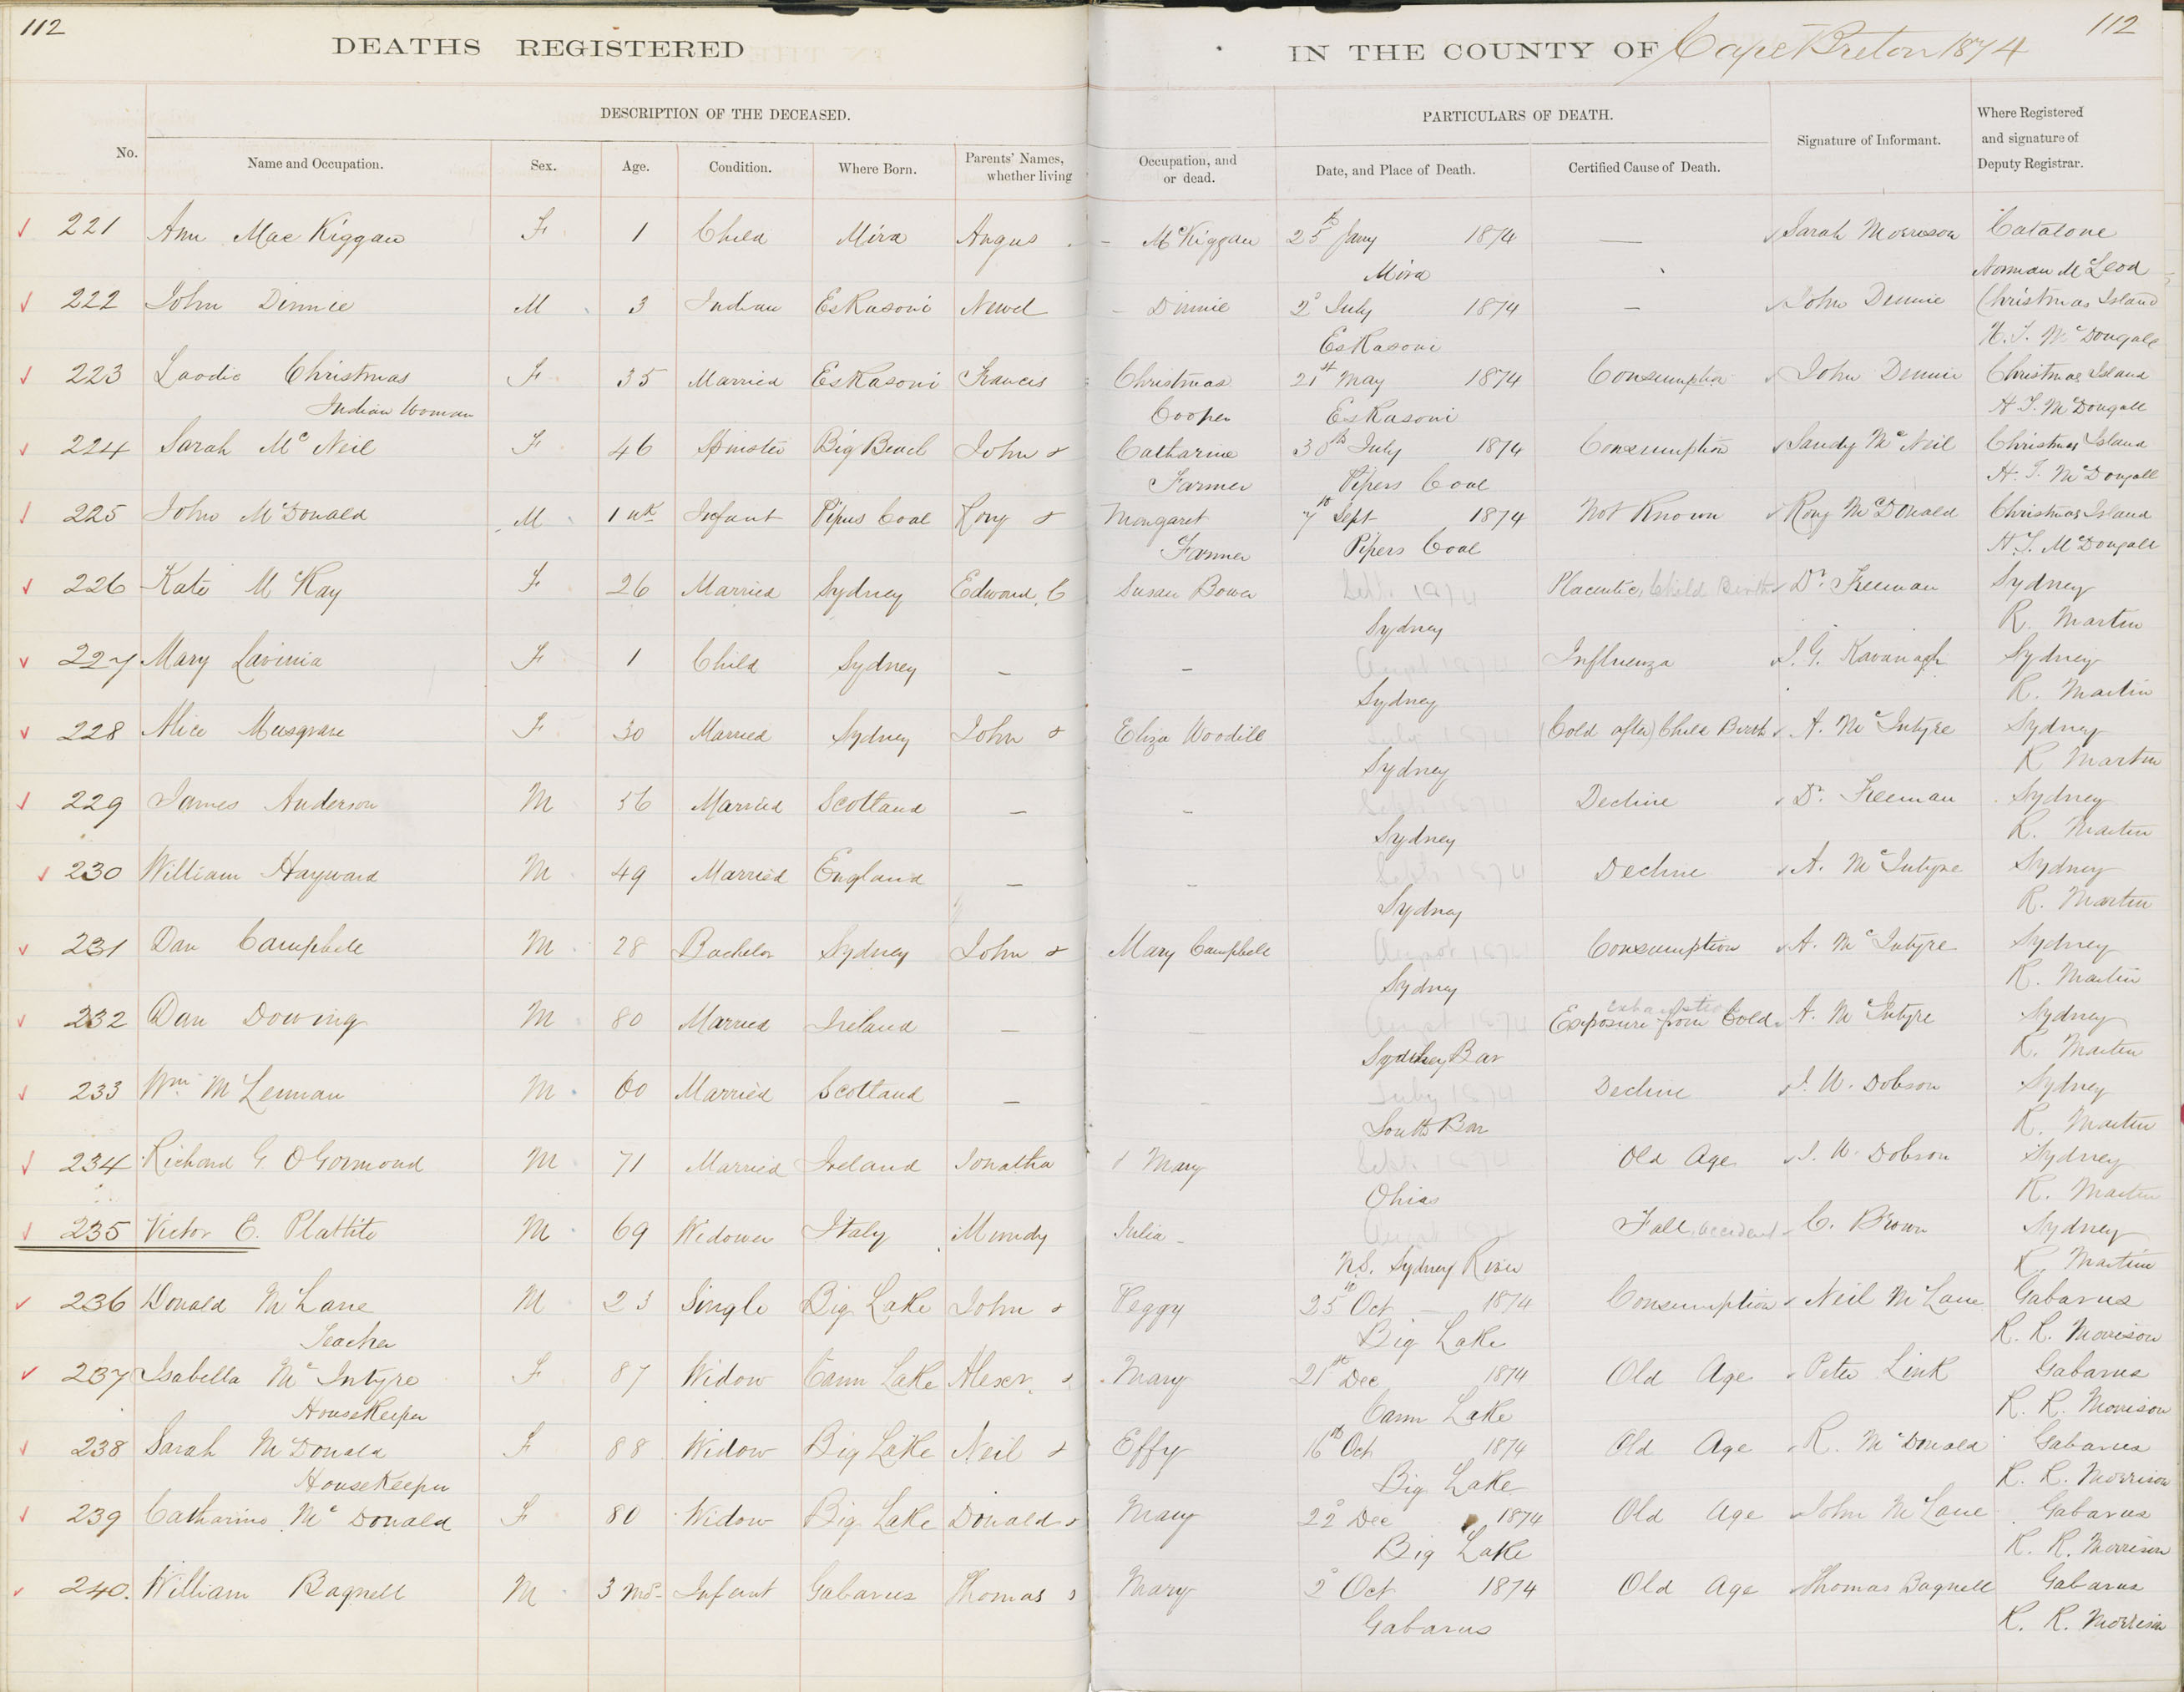 112
DEATHS REGISTERED
IN THE COUNTY OF Cape Breton 1874
112
DESCRIPTION OF THE DECEASED.
PARTICULARS OF DEATH.
No.
Name and Occupation.
Sex.
Age.
Condition.
Where Born.
Parents' Names, whether living
Occupation, and or dead.
Date, and Place of Death.
Certified Cause of Death.
Signature of Informant.
Where Registered and signature of Deputy Registrar.
221 Ann MacKiggan F 1 Child Mira Angus - McKiggan 25th Jany 1874 — Sarah Morrison Catalone
Mira Norman McLeod
222 John Dinnie M 3 Indian EsKasoni Newel - Dinnie 2d July 1874 — John Dennie Christmas Island
EsKasoni H. T. McDougall
223 Christmas F 35 Married EsKasoni Francis Christmas 21st May 1874 Consumption John Dennie Christmas Island
Indian Woman Cooper EsKasoni H. T. McDougall
224 Sarah McNeil F 46 Spinster Big Beach John & Catharine 30th July 1874 Consumption Sandy McNeil Christmas Island
Farmer Pipers Coal H. T. McDougall
225 John McDonald M 1 wk Infant Pipers Coal Rory & Margaret 7th Sept 1874 Not Known Rory McDonald Christmas Island
Farmer Pipers Coal H. T. McDougall
226 Kate McKay F 26 Married Sydney Edward C Susan Bown Sept 1874 Child Birth Dr. Freeman Sydney
Sydney R. Martin
227 Mary Lavinia F 1 Child Sydney — - August 1874 Influenza J. G. Kavanagh Sydney
Sydney R. Martin
228 Alice Musgrave F 30 Married Sydney John & Eliza Woodill July 1874 (Cold after) Child Birth A. McIntyre Sydney
Sydney R Martin
229 James Anderson M 56 Married Scotland — - Sept 1874 Decline Dr. Freeman Sydney
Sydney R. Martin
230 William Hayward M 49 Married England — - Sept 1874 Decline A. McIntyre Sydney
Sydney R. Martin
231 Dan Campbell M 28 Bachelor Sydney John & Mary Campbell August 1874 Consumption A. McIntyre Sydney
Sydney R. Martin
232 Dan Dowing M 80 Married Ireland — - August 1874 Exposure from Cold A. McIntyre Sydney
Sydney Bar R. Martin
233 Wm McLennan M 60 Married Scotland — - July 1874 Decline J. W. Dobson Sydney
South Bar R. Martin
234 Richard G. OGormond M 71 Married Ireland Jonatha & Mary Sept 1874 Old Age J. W. Dobson Sydney
Ohias R. Martin
235 Victor E. Plattite M 69 Widower Italy Mundy Julia - August 1874 Fall, accident C. Brown Sydney
N.S. Sydney River R. Martin
236 Donald McLane M 23 Single Big Lake John & Peggy 25th Oct - 1874 Consumption Neil McLane Gabarus
Teacher Big Lake R. R. Morrison
237 Isabella McIntyre F 87 Widow Cann Lake Alexr. & Mary 21st Dec 1874 Old Age Peter Link Gabarus
HouseKeeper Cann Lake R. R. Morrison
238 Sarah McDonald F 88 Widow Big Lake Neil & Effy 16th Oct 1874 Old Age R. McDonald Gabarus
HouseKeeper Big Lake R. R. Morrison
239 Catharine McDonald F 80 Widow Big Lake Donald & Mary 22d Dec 1874 Old Age John McLane Gabarus
Big Lake R. R. Morrison
240. William Bagnell M 3 mos Infant Gabarus Thomas & Mary 2d Oct 1874 Old Age Thomas Bagnell Gabarus
Gabarus R. R. Morrison